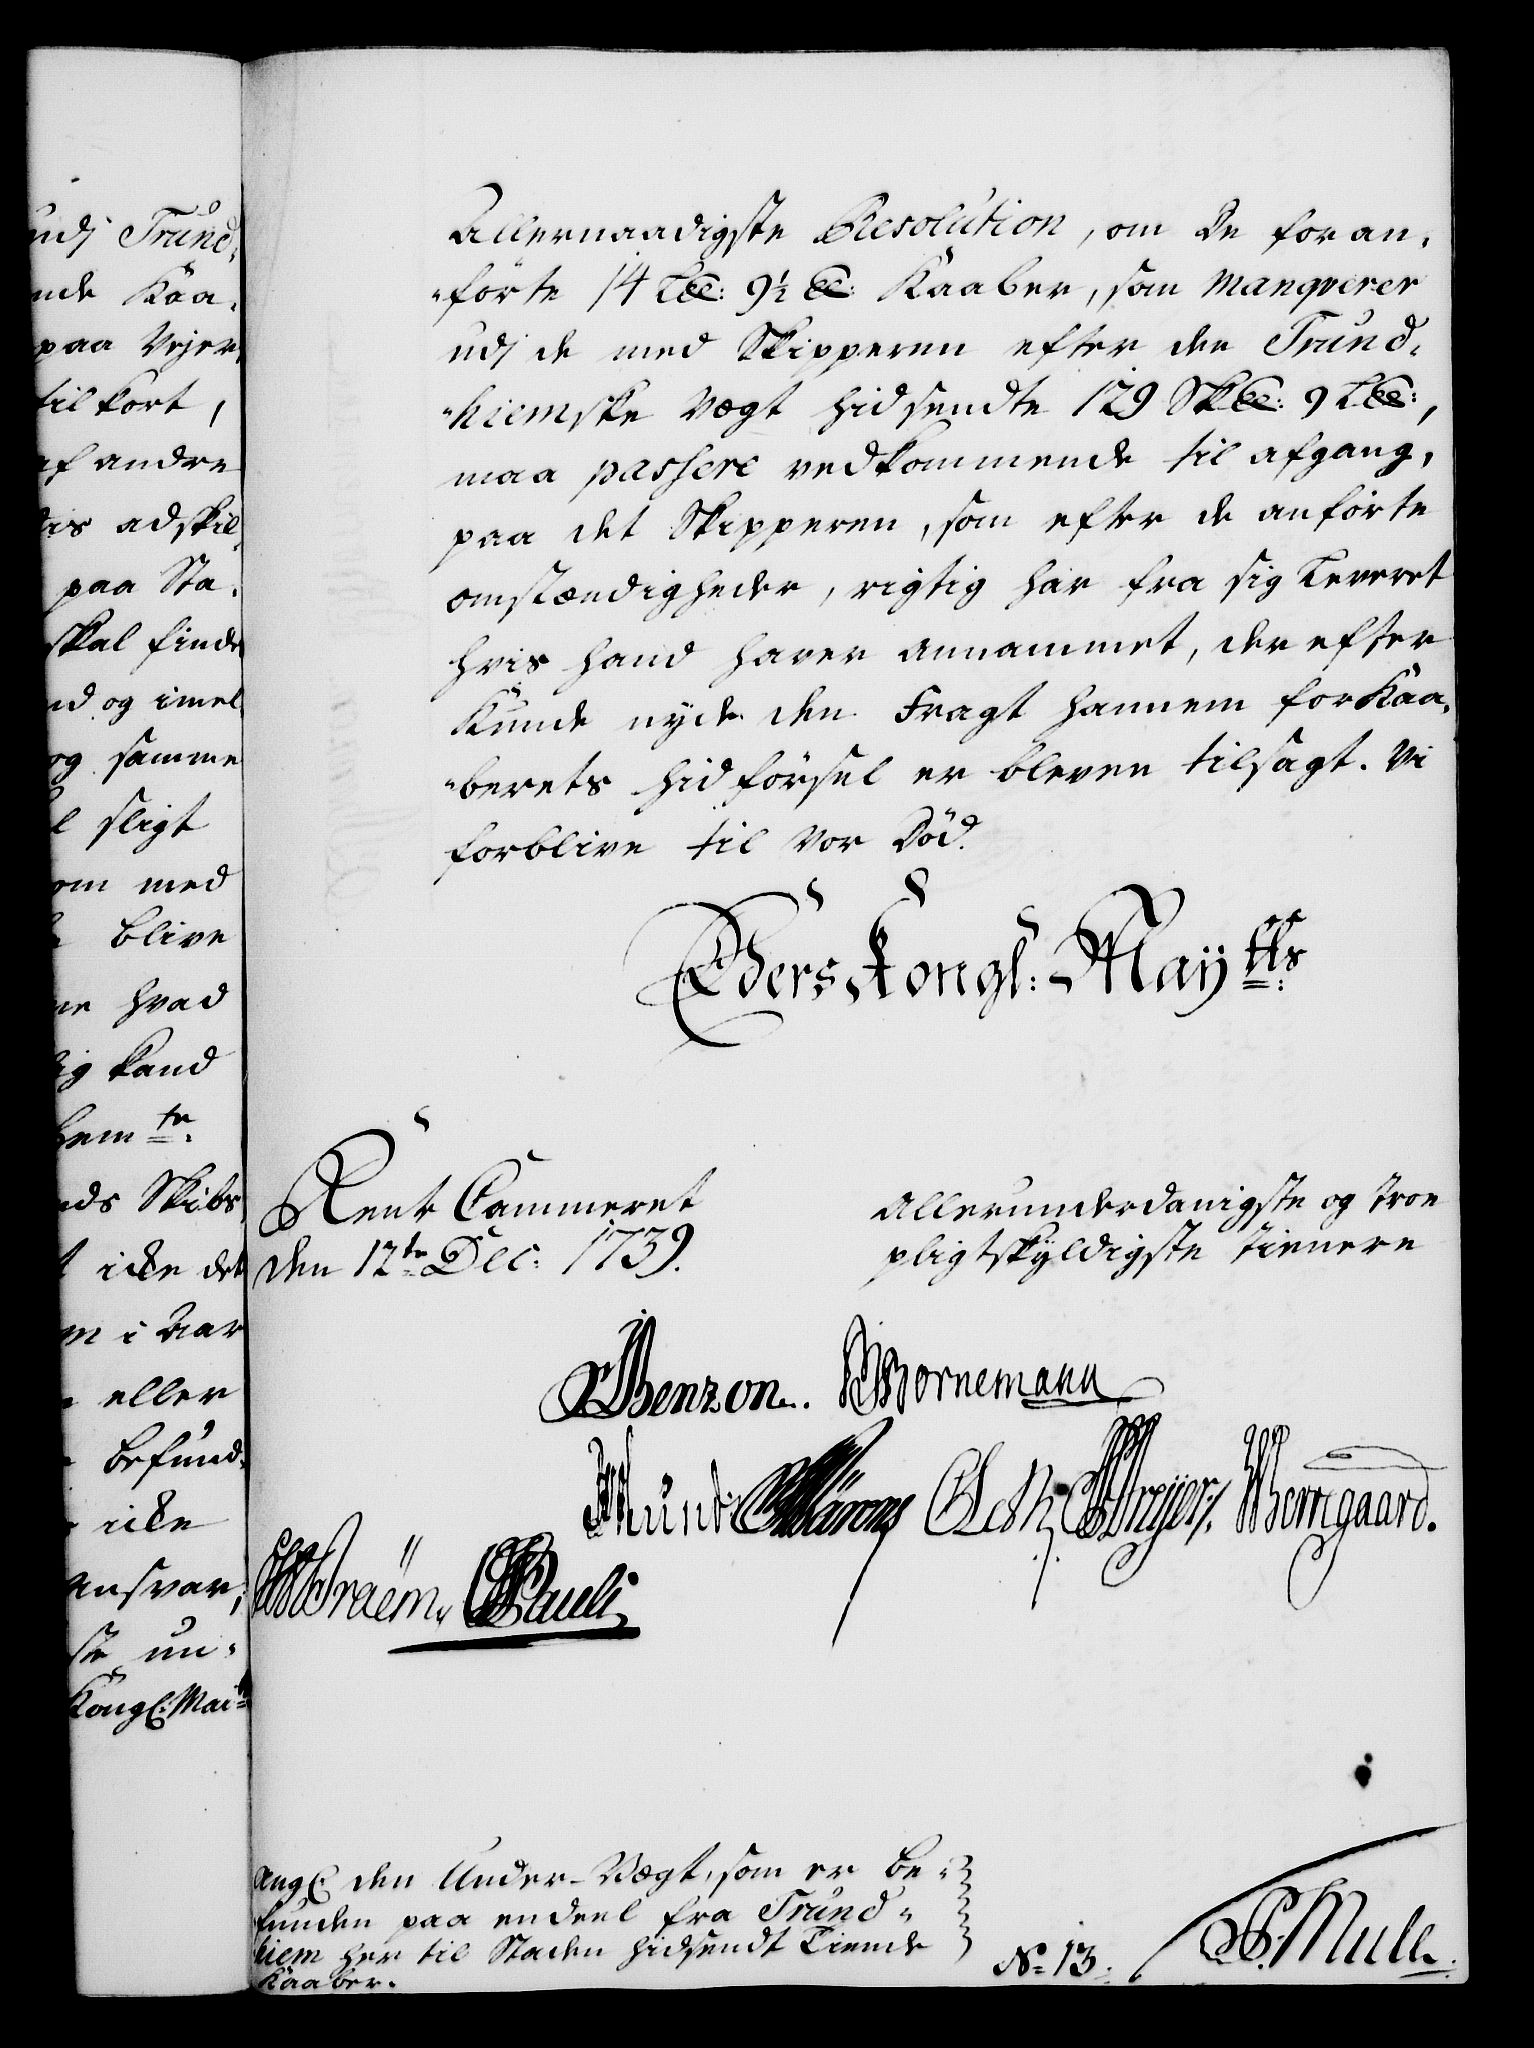 udj Trund,
nde Kaa-
paa Vejer
til kort,
af andre
is adskil-
paa Sta-
skal finde
nd og imel
og samme
l sligt
om med
blive
ne hvad
ig kand
hem te
nds Skibs,
t icke det
m i kar
eller
befund-
icke
ansvar,
ste un-
Kongl: Mai
Allernaadigste Resolution, om de foran-
-förte 14 L℔: 9½ ℔: Kaaber, som manqverer
udj de med Skipperen efter den Trund-
-hiemske Vægt hidsendte 129 Sk℔: 9 L℔:,
maa passere vedkommende til afgang,
paa det Skipperen, som efter de anförte
omstændigheder, rigtig har fra sig leveret
hvis hand haver annammet, derefter
kunde nyde den Fragt hannem for Kaa-
-berets hidförsel er bleven tilsagt. Vi
forblive til vor Död.
Eders Kongl: Mayts
Rente Cammeret
den 12te Dec: 1739.
Allerunderdanigste og troe
pligtskyldigste tienere
Benzon. Bornemann
Munt. Kreÿer. Werregaard.
Fraëm. Pauli
Angl: den Under-Vægt, som er be-
funden paa endeel fra Trund-
hiem her til Staden hidsendt Tiende
Kaaber.
No 13.
P. Mule.